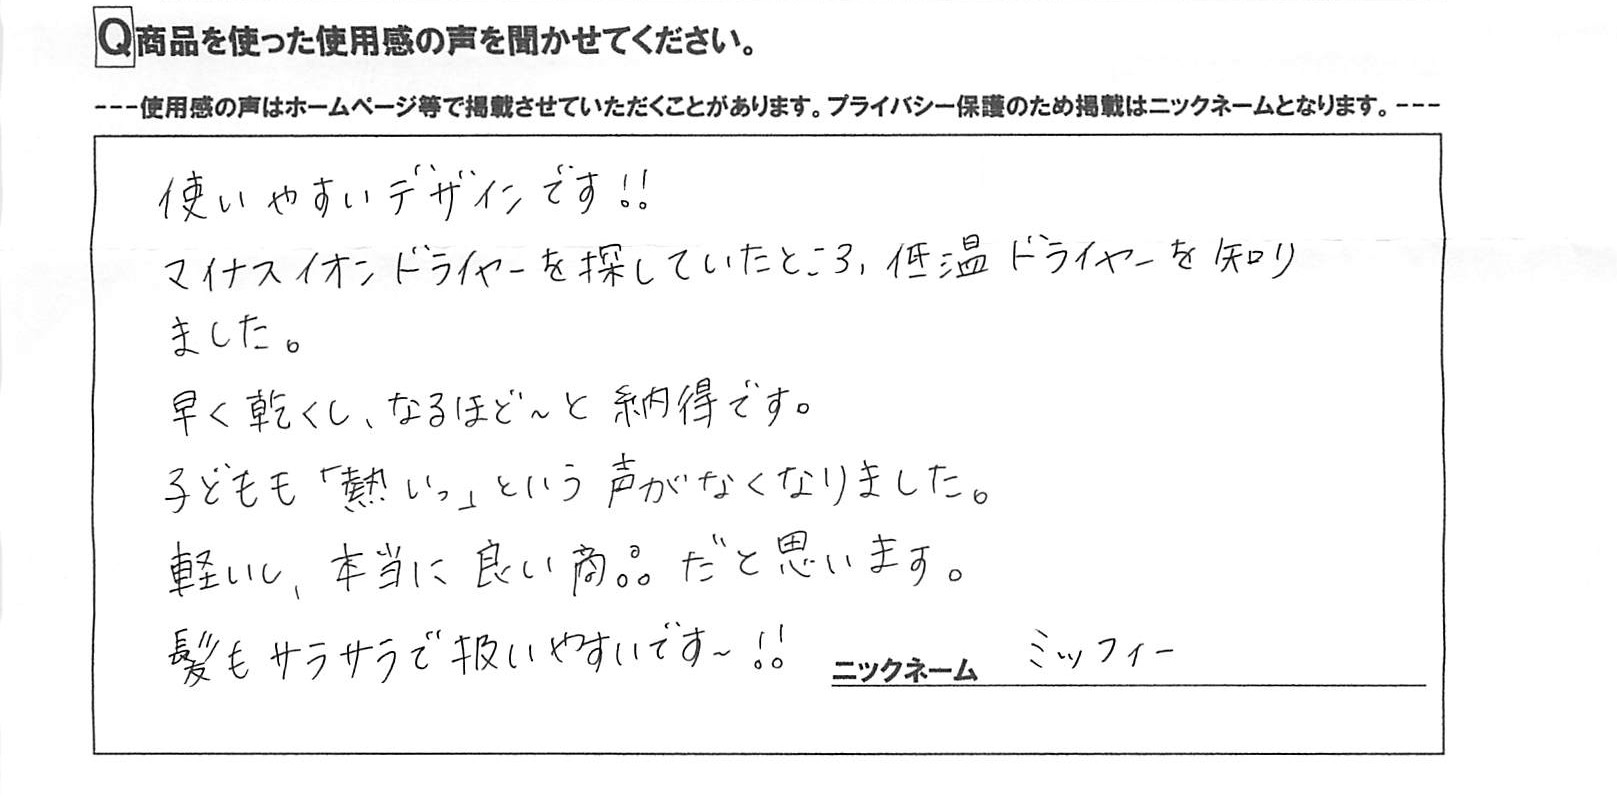 Q商品を使った使用感の声を聞かせてください。
---使用感の声はホームページ等で掲載させていただくことがあります。プライバシー保護のため掲載はニックネームとなります。---
使いやすいデザインです!!
マイナスイオンドライヤーを探していたところ、低温ドライヤーを知り
ました。
早く乾くし、なるほど～と納得です。
子どもも「熱いっ」という声がなくなりました。
軽いし、本当に良い商品だと思います。
髪もサラサラで扱いやすいです～!!
ニックネーム ミッフィー